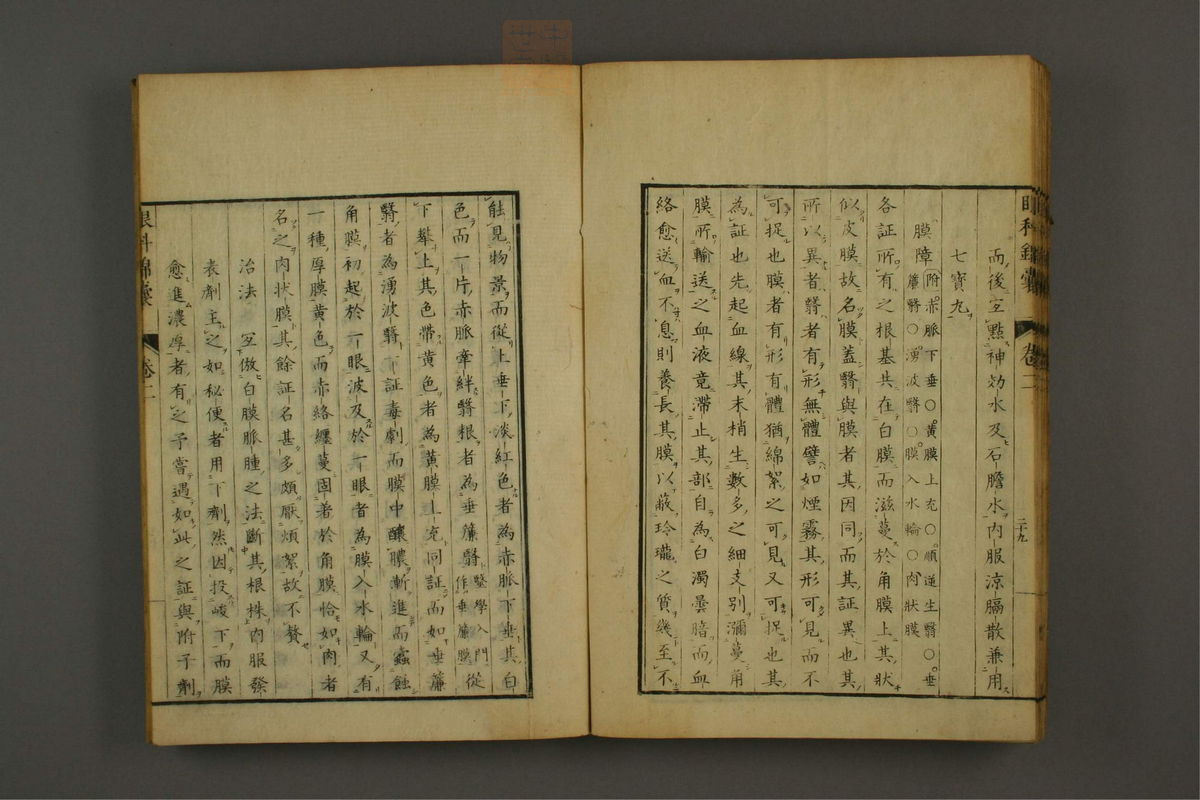 而後宜點神効水及石膽水内服涼膈散兼用
七寶丸
膜障 附赤脈下垂○黄膜上充○順逆生翳○垂
簾翳○湧波翳○膜入水輪○肉狀膜
各証所有之根基共在白膜而滋蔓於角膜上其狀
似皮膜故名膜蓋翳與膜者其因同而其証異也其
所以異者翳者有形無體譬如煙霧其形可見而不
可捉也膜者有形有體猶綿絮之可見又可捉也其
為証也先起血線其末梢生數多之細支別瀰蔓角
膜所輸送之血液竟滯止其部自為白濁曇暗而血
絡愈送血不息則養長其膜以蔽玲瓏之質幾至不
眼科錦囊 卷二
二十九
能見物景而從上垂下淡紅色者為赤脈下垂其白
色而一片赤脈牽絆翳根者為垂簾翳 醫學入門
作垂簾膜 從
下攀上其色帶黄色者為黄膜上充同証而如垂簾
翳者為湧波翳下証毒劇而膜中釀膿漸進而蟲蝕
角膜初起於一眼波及於一眼者為膜入水輪又有
一種厚膜黄色而赤絡纒蔓固著於角膜恰如肉者
名之肉状膜其餘証名甚多頗厭煩絮故不贅
治法 宜倣白膜脈腫之法斷其根株内服發
表劑主之如秘便者用下劑然因投峻下而膜
愈進濃厚者有之予嘗遇如此之証與附子劑
眼科錦囊 卷二